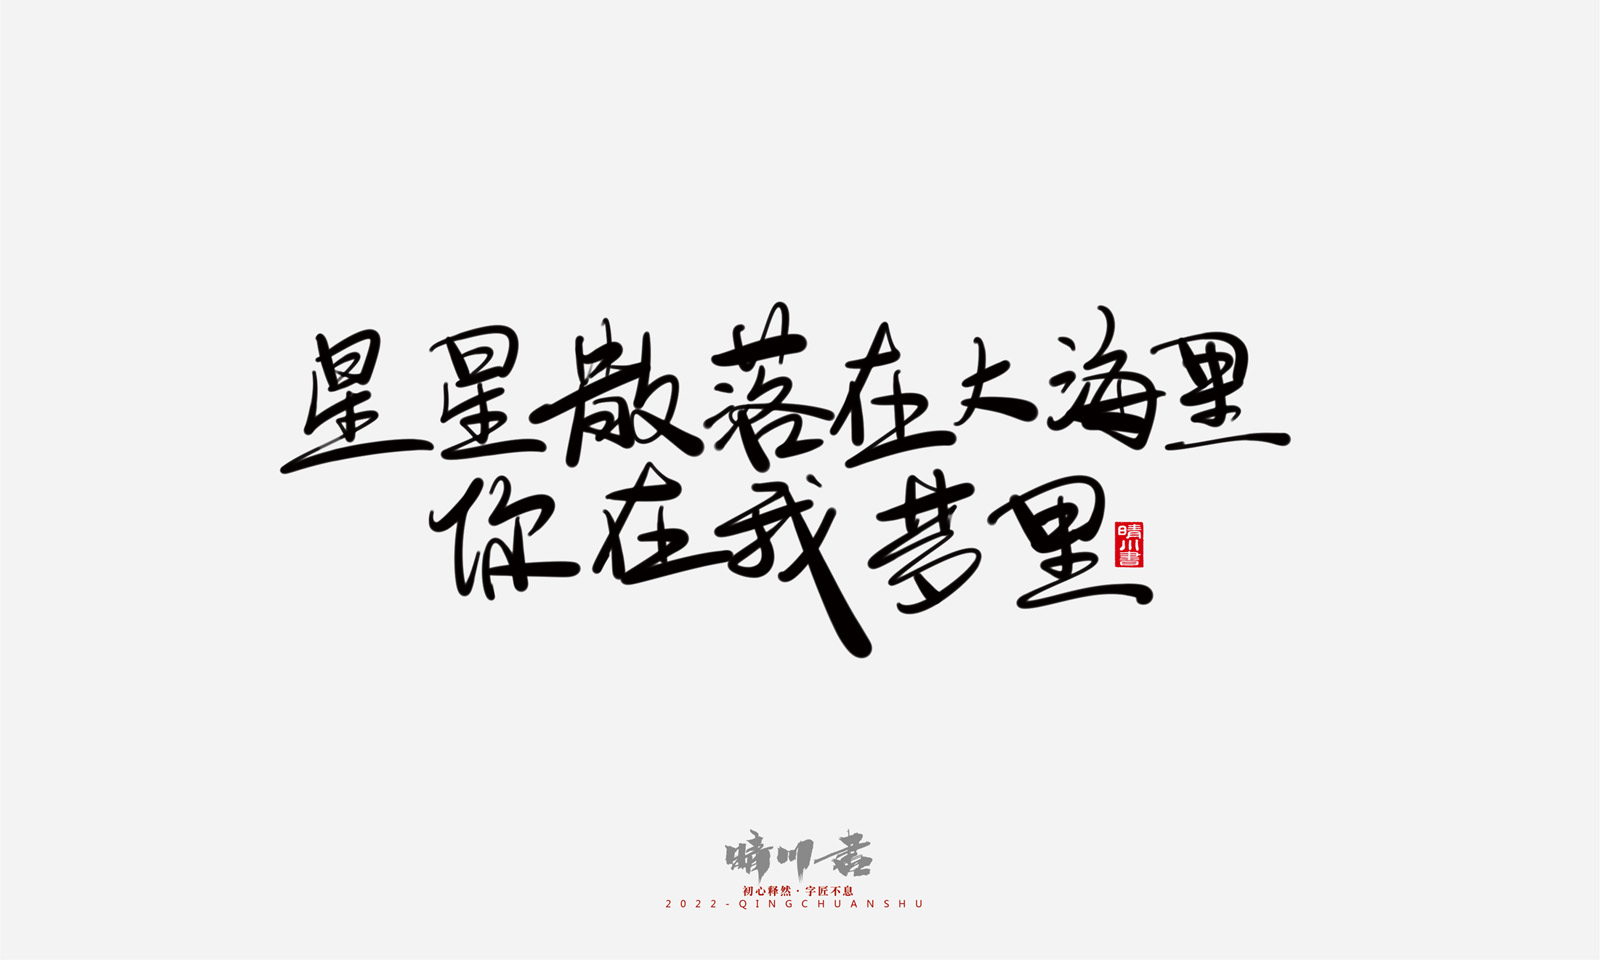 星星散落在大海里
你在我梦里
晴川書
晴川書
初心释然·字匠不息
2022-QINGCHUANSHU